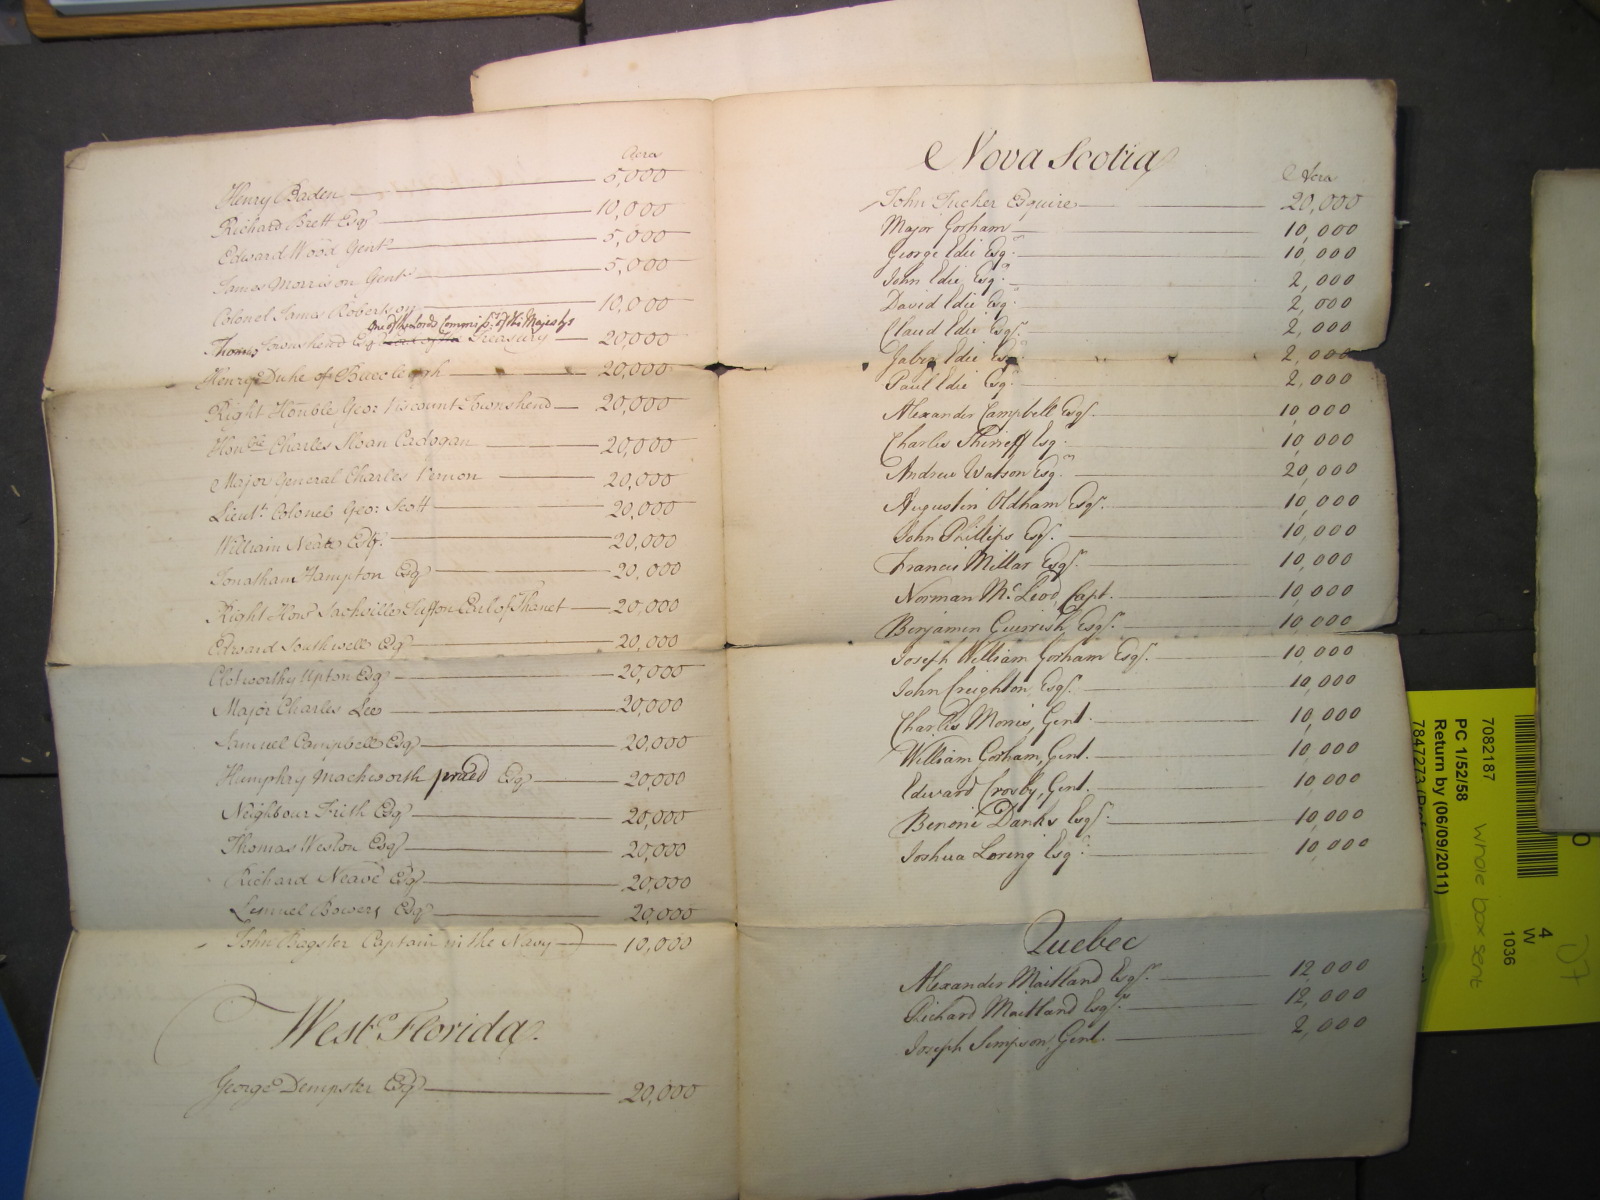 Acres
Henry Baden 5,000
Richard Brett Esqr 10,000
Edward Wood Gent 5,000
James Morrison Gent 5,000
Colonel James Robertson 10,000
One of the Lords Commisrs of his Majestys
Thomas Townshend Esq Treasury 20,000
Henry Duke of Buccleugh 20,000
Right Honble Geo: Viscount Townshend 20,000
Honble Charles Sloan Cadogan 20,000
Major General Charles Vernon 20,000
Lieut. Colonel Geo: Scott 20,000
William Neate Esqr. 20,000
Jonathan Hampton Esqr 20,000
Right Honr Sackville Tufton Earl of Thanet 20,000
Edward Southwell Esqr 20,000
Clotworthy Upton Esqr 20,000
Major Charles Lee 20,000
Samuel Campbell Esqr 20,000
Humphry Mackworth praed Esqr 20,000
Neighbour Frith Esqr 20,000
Thomas Weston Esqr 20,000
Richard Neave Esqr 20,000
Lemuel Bowers Esqr 20,000
John Bagster Captain in the Navy 10,000
West Florida.
George Dempster Esqr 20,000
Nova Scotia
Acres
John Tucker Esquire 20,000
Major Gorham 10,000
George Edie Esqr. 10,000
John Edie Esqr. 2,000
David Edie Esqr. 2,000
Claud Edie Esqr. 2,000
Edie Esqr. 2,000
Paul Edie Esqr. 2,000
Alexander Campbell Esqr. 10,000
Charles Shirreff Esqr. 10,000
Andrew Watson Esqr. 20,000
Augustin Oldham Esqr. 10,000
John Phillips Esqr. 10,000
Francis Millar Esqr. 10,000
Norman Mc.Leod, Capt. 10,000
Benjamin Guerrish, Esqr. 10,000
Joseph William Gorham Esqr. 10,000
John Creighton, Esqr. 10,000
Charles Morris, Gent. 10,000
William Gorham, Gent. 10,000
Edward Crosby, Gent. 10,000
Benoni Danks Esqr. 10,000
Joshua Loring Esqr. 10,000
Quebec
Alexander Maitland Esqr. 12,000
Richard Maitland Esqr. 12,000
Joseph Simpson, Gent. 2,000
7082187
PC 1/52/58
Return by (06/09/2011)
7847273
whole box sent
4
W
1036